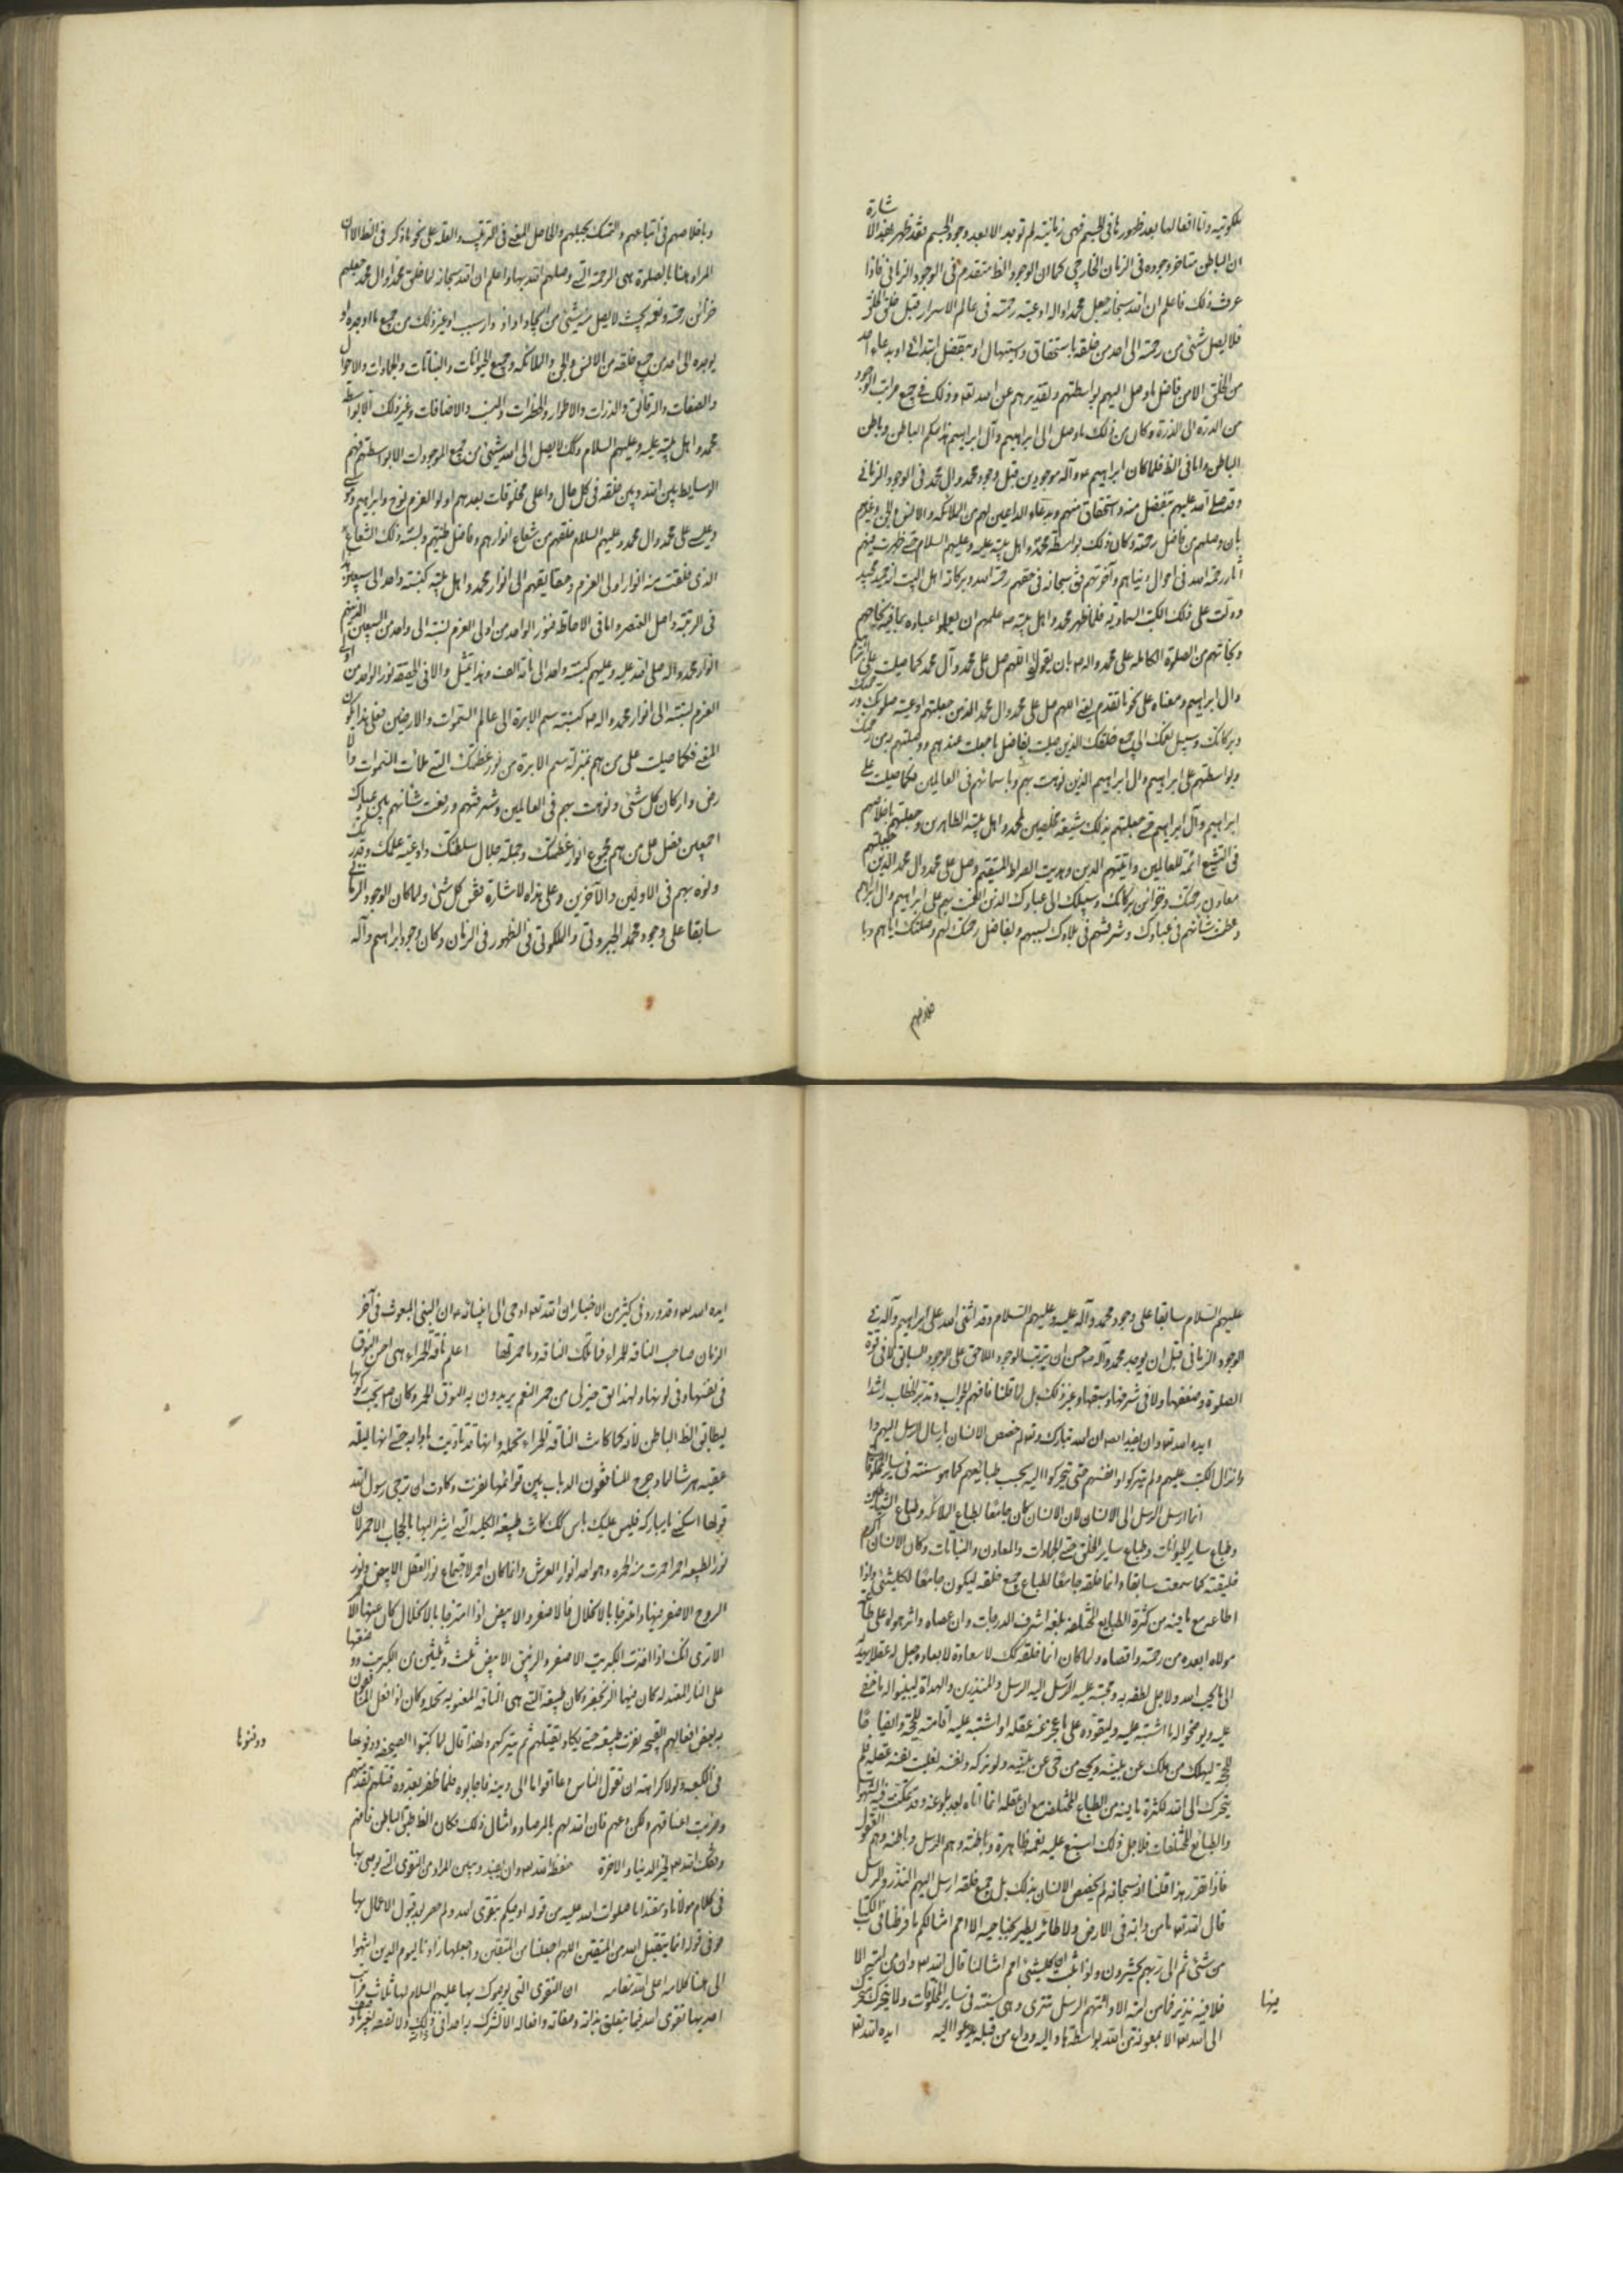 ملكوتية وانا افعالها بعد ظهورها في الجسم فهي زمانية لم توجد الا بعد وجود الجسم فقد ظهر بهذه الاشارة
ان الباطن متاخر وجوده في الزمان الخارجي كما ان الوجود الظ متقدم في الوجود الزماني فاذا
عرفت ذلك فاعلم ان الله سبحانه جعل محمدا واله اوعية رحمته في عالم الاسرار قبل خلق الخلق
فلا يصل شئ من رحمته الى احد من خلقه باستحقاق او بتفضل ابتدائي او بدعاء احد
من الخلق الا من فاضل ما وصل اليهم بواسطتهم وتقديرهم عن امد الله وذلك في جميع مراتب الوجود
من الدرة الى الذرة وكان من ذلك ما وصل الى ابراهيم وآل ابراهيم هذا حكم الباطن وباطن
الباطن واما في الظ فلما كان ابراهيم ع وآله موجودين قبل وجود محمد وال محمد في الوجود الزماني
وقد صلى الله عليهم بتفضل منه واستحقاق منهم وبدعاء الداعين لهم من الملائكة والانس والجن وغيرهم
بان وصلهم من فاضل رحمته وكان ذلك بواسطة محمد واهل بيته عليه وعليهم السلام حتى ظهرت فيهم
آثار رحمة الله في احوال دنياهم وآخرتهم فق سبحانه في حقهم رحمة الله وبركاته اهل البيت انه حميد مجيد
ودلت على ذلك الكتب السماوية فلما ظهر محمد واهل بيته ص علمهم ان يعلموا عباده بما فيه نجاحهم
ونجاتهم من الصلوة الكاملة على محمد واله ص بان يقولوا اللهم صل على محمد وآل محمد كما صليت على ابراهيم
وال ابراهيم ومعناه على نحو ما تقدم يعني اللهم صل على محمد وال محمد الذين جعلتهم اوعية صلوتك ورحمتك
وبركاتك وسبيل نعمك الى جميع خلقك الذين صليت بفاضل ما جعلت عندهم ووصلتهم به من رحمتك
وبواسطتهم على ابراهيم وال ابراهيم الذين نوهت بهم وباسمائهم في العالمين فكما صليت على
ابراهيم وآل ابراهيم حتى جعلتهم بذلك شيعة مخلصين لمحمد واهل بيته الطاهرين وجعلتهم باخلاصهم
في التشيع ائمة للعالمين وآتيتهم الدين وهديت الصراط المستقيم وصل على محمد وال محمد الذين جعلتهم
معادن رحمتك وخزائن بركاتك وسبيلك الى عبادك الذين انعمت بهم على ابراهيم وال ابراهيم
وعظمت شانهم في عبادك وشرفتهم في بلادك بسببهم وبفاضل رحمتك لهم وصلتك اياهم وبا
خلاصهم
وباخلاصهم في اتباعهم والتمسك بحبلهم والحاصل المعنى في الترتيب والعلة على نحو ما ذكر في الظ الا ان
المراد هنا بالصلوة هي الرحمة التي وصلهم الله بها واعلم ان الله سبحانه لما خلق محمدا وال محمد جعلهم
خزائن رحمته ونعمه بحيث لا يصل منه شئ من ايجاد او امداد واسباب او غير ذلك من جميع ما اوجده او
يوجده الى احد من جميع خلقه من الانس والجن والملائكة وجميع الحيوانات والنباتات والجمادات والاحوال
والصفات والرقائق والذرات والاطوار والخطرات والنسب والاضافات وغير ذلك الا بواسطة
محمد واهل بيته عليه وعليهم السلام وكك لا يصل الى الله شئ من جميع الموجودات الا بواسطتهم فهم
الوسايط بين الله وبين خلقه في كل حال واعلى مخلوقات بعدهم اولو العزم نوح وابراهيم وموسى
وعيسى على محمد وال محمد وعليهم السلام خلقهم من شعاع انوارهم وفاضل طينتهم ونسبة ذلك الشعاع
الذي خلقت منه انوار اولي العزم وحقايقهم الى انوار محمد واهل بيته كنسبة واحد الى سبعين
في الرتبة واصل العنصر واما في الاحاطة فنور الواحد من اولي العزم نسبته الى واحد من السبعين
انوار محمد واله صلى الله عليه وعليهم كنسبة واحد الى مائة الف وهذا تمثيل والا في الحقيقة نور الواحد من اولي
العزم نسبته الى انوار محمد واله ص كنسبة سم الابرة الى عالم السموات والارضين فعلى هذا يكون
المعنى فكما صليت على من هم بمنزلة سم الابرة من نور عظمتك التي ملأت السموات والا
رض واركان كل شئ ونوهت بهم في العالمين وشرفتهم ورفعت شانهم بين عبادك
اجمعين فصل على من هم مجموع انوار عظمتك وحملة جلال سلطنتك واوعية علمك وقدرتك
ونوه بهم في الاولين والآخرين وعلى هذه الاشارة فقس كل شئ ولما كان الوجود الزماني
سابقا على وجود محمد الجبروتي والملكوتي في الظهور في الزمان وكان وجود ابراهيم وآله
عليهم السلام سابقا على وجود محمد وآله عليه وعليهم السلام وقد اثنى الله على ابراهيم وآله في
الوجود الزماني قبل ان يوجد محمد وآله ص حسن ان يرتب الوجود اللاحق على الوجود السابق لا في قوة
الصلوة وضعفها ولا في شرفها وسبقها وغير ذلك بل لما قلنا فافهم الجواب وتدبر الخطاب راشدا
ايده الله تع وان يفيد ان الله تبارك وتع لم خصص الانسان بارسال الرسل اليهم وا
وانزال الكتب عليهم ولم يتركوا وانفسهم حتى يتحركوا اليه بحسب طبائعهم كما هو سنته في ساير المخلوقات
انما ارسل الرسل الى الانسان لان الانسان كان جامعا لطباع الملائكة وطباع الشياطين
وطباع ساير الحيوانات وطباع ساير الخلق حتى الجمادات والمعادن والنباتات وكان الانسان اكرم
خليقته كما سمعت سابقا وانما خلقه جامعا لطباع جميع خلقه ليكون جامعا لكل شئ واذا
اطاعه مع ما فيه من كثرة الطبايع المختلفة بلغ اشرف الدرجات وان عصاه واثر هواه على طاعة
مولاه ابعده من رحمته واقصاه ولما كان انما خلقه كك لاسعاده لا لبعاده جعل له عقلا يهديه
الى ما يحب الله ولاجل لطفه به ومحبته عليه ارسل اليه الرسل والمنذرين والهداة ليبينوا له ما خفي
عليه ويوضحوا له ما اشتبه عليه وليقودوه على ما عجز عنه عقله او اشتبه عليه اقامة للحجة وايضاحا
للحجة ليهلك من هلك عن بينة ويحيى من حي عن بينة ولو تركه ونفسه لغلبت نفسه عقله فلم
يتحرك الى الله لكثرة ما فيه من الطباع المختلفة مع ان عقله انما اتاه بعد بلوغه وقد تمكنت فيه الشهوات
والطبائع المختلفات فلاجل ذلك اسبغ عليه نعمه ظاهرة وباطنة وهم الرسل وباطنة وهم العقول
فاذا تقرر هذا قلنا انه سبحانه لم يخصص الانسان بذلك بل جميع خلقه ارسل اليهم النذر والرسل
قال الله تع وما من دابة في الارض ولا طائر يطير بجناحيه الا امم امثالكم ما فرطنا في الكتاب
من شئ ثم الى ربهم يحشرون ولو اثبت ان كل شئ امم امثالنا قال الله تع وان من امة الا
خلا فيها نذير فما من امة الا واتتهم الرسل تترى وهي سنته في ساير المخلوقات ولا يتحرك متحرك
منها
الى الله تع الا بمعونة من الله بواسطة هاد اليه وداع من قبله يدعوا اليه ايده الله تع
ايده الله تع وقد ورد في كثير من الاخبار ان الله تع اوحى الى انبيائه ع ان النبي المبعوث في آخر
الزمان صاحب الناقة الحمراء فما تلك الناقة وما حمرتها اعلم ناقة الحمراء هي احسن النوق
في نفسها وفي لونها ولهذا يق خير لي من حمر النعم يريدون به النوق الحمر وكان ص يحب ركوبها
ليطابق الظ الباطن لانه كما كانت الناقة الحمراء تحمله وانها قد تأدبت بادابه حتى انها ليلة
عقبة هرشا لما دحرج المنافقون الدباب بين قوائمها نفرت وكادت ان ترمي رسول الله
فق لها اسكني يا مباركة فليس عليك باس كك كانت طبيعته الكلية التي اشير اليها بالحجاب الاحمر لان
نور الطبيعة احمر احمرت منه الحمرة وهو احد انوار العرش وانما كان احمر لاجتماع نور العقل الابيض ونور
الروح الاصفر فيها وامتزجا بالانحلال فالاصفر والابيض اذا امتزجا بالانحلال كان عنهما الاحمر
الا ترى انك اذا اخذت الكبريت الاصفر والزيبق الابيض ثلث وثلثين من الكبريت ووضعتها
على النار المعتدلة كان منهما الزنجفر وكان طبيعته التي هي الناقة المعنوية تحمله وكان اذا فعل المنافقون
به بعض افعالهم القبيحة نفرت طبيعته حتى يكاد يقتلهم ثم يتركهم ولهذا قال لما كتبوا الصحيفة ودفنوها
ودفنوها
في الكعبة ولولا كراهة ان تقول الناس دعا اقواما الى دينه فاجابوه فلما ظفر بعدوه قتلهم لقدمتهم
وضربت اعناقهم ولكن دعهم فان الله لهم بالمرصاد وامثال ذلك فكان الظ طبق الباطن فافهم
وفقك الله تع لخير الدنيا والاخرة حفظه الله تع وان يفيد ويبين المراد من التقوى التي يوصي بها
في كلام مولانا ومقتدانا صلوات الله عليه من قوله اوصيكم بتقوى الله ولم حصر لقبول الاعمال بها
هو في قوله انما يتقبل الله من المتقين اللهم اجعلنا من المتقين واجعلها زادنا ليوم الدين انتهوا
الى هنا كلامه اعلى الله مقامه ان التقوى التي يوصوك بها عليهم السلام لها ثلاث مراتب
احديها تقوى الله فيما يتعلق بذاته وصفاته وافعاله الا تشرك به احدا في ذلك ولا تصفه بغير ما وصف